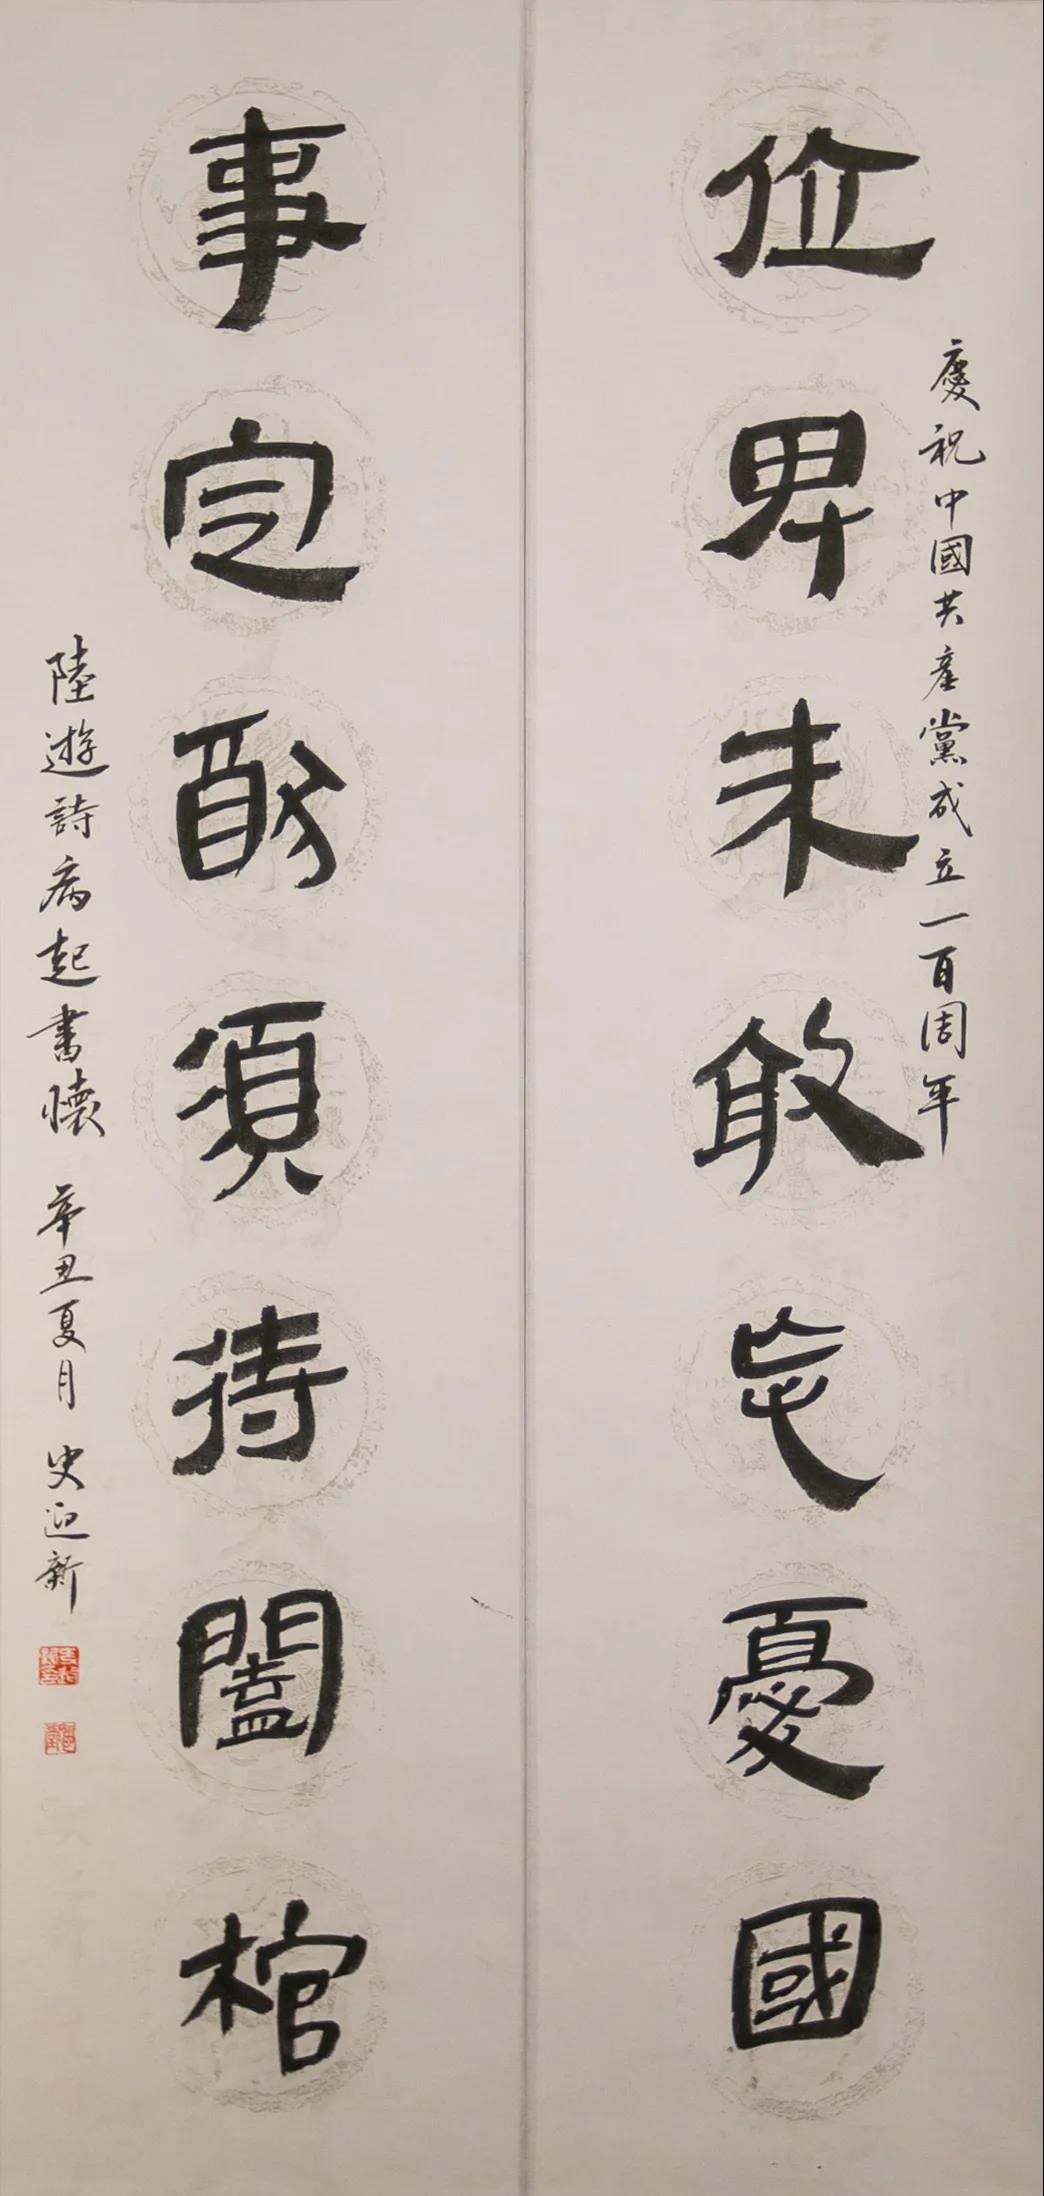 慶祝中國共產黨成立一百周年
位卑未敢忘憂國
事定猶須待闔棺
陸遊詩病起書懷 辛丑夏月 史迎新